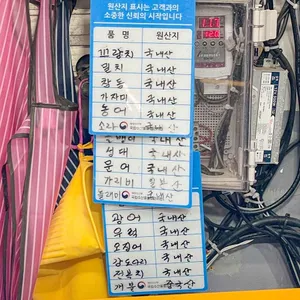 원산지 표시는 고객과의
소중한 신뢰의 시작입니다
품 명 원산지
꼬랑치 국내산
밀치 국내산
잡동 국내산
가자미 국내산
농어 국내산
소라 국내산
성대 국내산
문어 국내산
가리비 일본산
국내산
광어 국내산
우럭 국내산
오징어 국내산
감도다리 국내산
전복치 국내산
개불 중국산